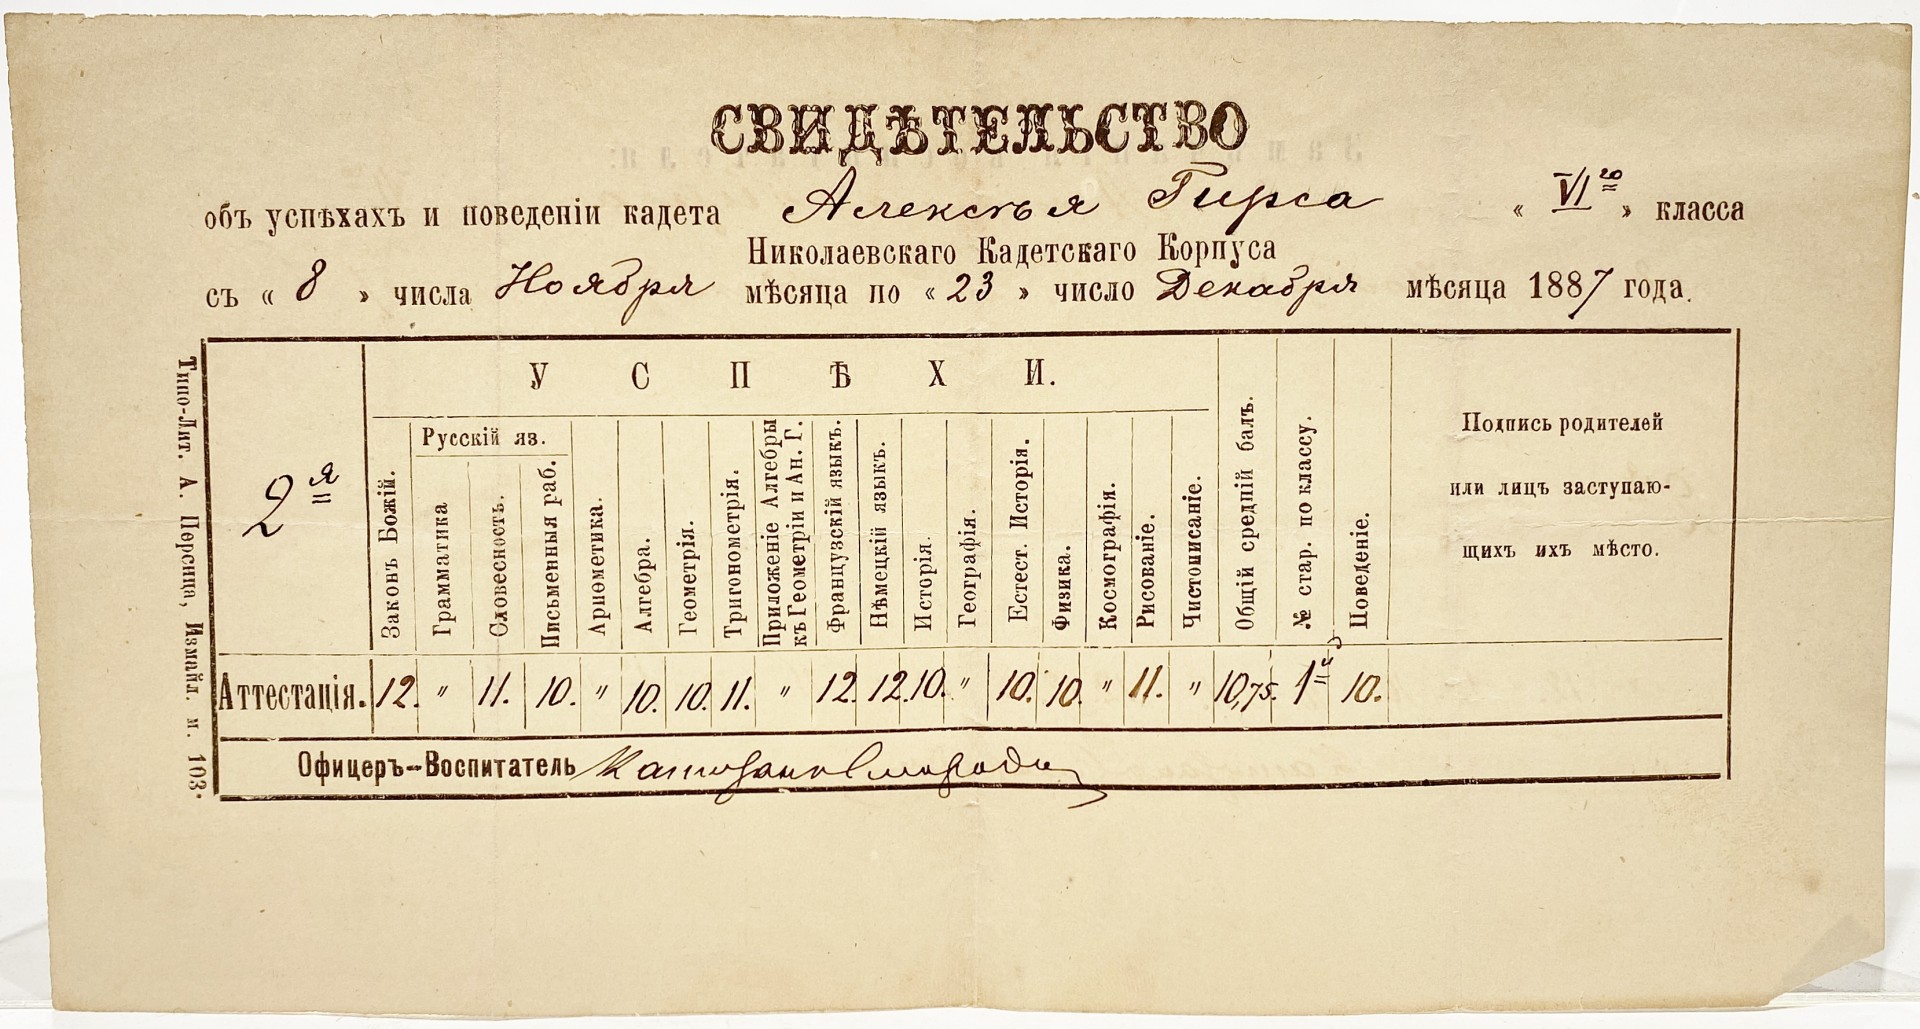 СВИДѢТЕЛЬСТВО
объ успѣхахъ и поведеніи кадета Алексѣя Гирса « VIго » класса
Николаевскаго Кадетскаго Корпуса
съ « 8 » числа Ноября мѣсяца по « 23 » число Декабря мѣсяца 1887 года.
Типо-Лит. А. Персица, Измайл. п. 103.
2я
УСПѢХИ.
Законъ Божій.
Русскій яз.
Грамматика
Словесность.
Письменныя раб.
Ариѳметика.
Алгебра.
Геометрія.
Тригонометрія.
Приложеніе Алгебры
къ Геометріи и Ан. Г.
Французскій языкъ.
Нѣмецкій языкъ.
Исторія.
Географія.
Естест. Исторія.
Физика.
Космографія.
Рисованіе.
Чистописаніе.
Общій средній балъ.
№ стар. по классу.
Поведеніе.
Подпись родителей
или лицъ заступаю-
щихъ ихъ мѣсто.
Аттестація. 12. " 11. 10. " 10. 10. 11. " 12. 12. 10. " 10. 10. " 11. " 10,75. 1й 10.
Офицеръ-Воспитатель